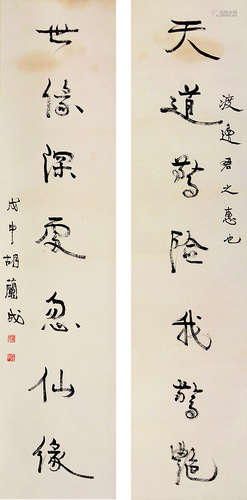 天道驚險我驚艷
渡邊君之惠也
世緣深處忽仙緣
戊申胡蘭成